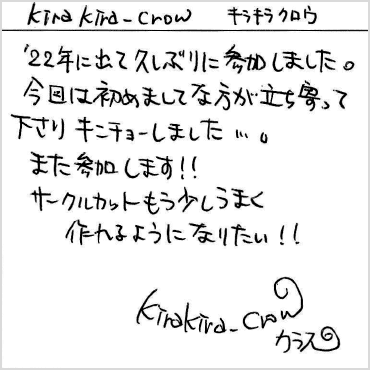 kira kira_crow キラキラクロウ
'22年に出て久しぶりに参加しました。
今回は初めましてな方が立ち寄って
下さりキンチョーしました…。
また参加します!!
サークルカットもう少しうまく
作れるようになりたい!!
kirakira_crow
カラス